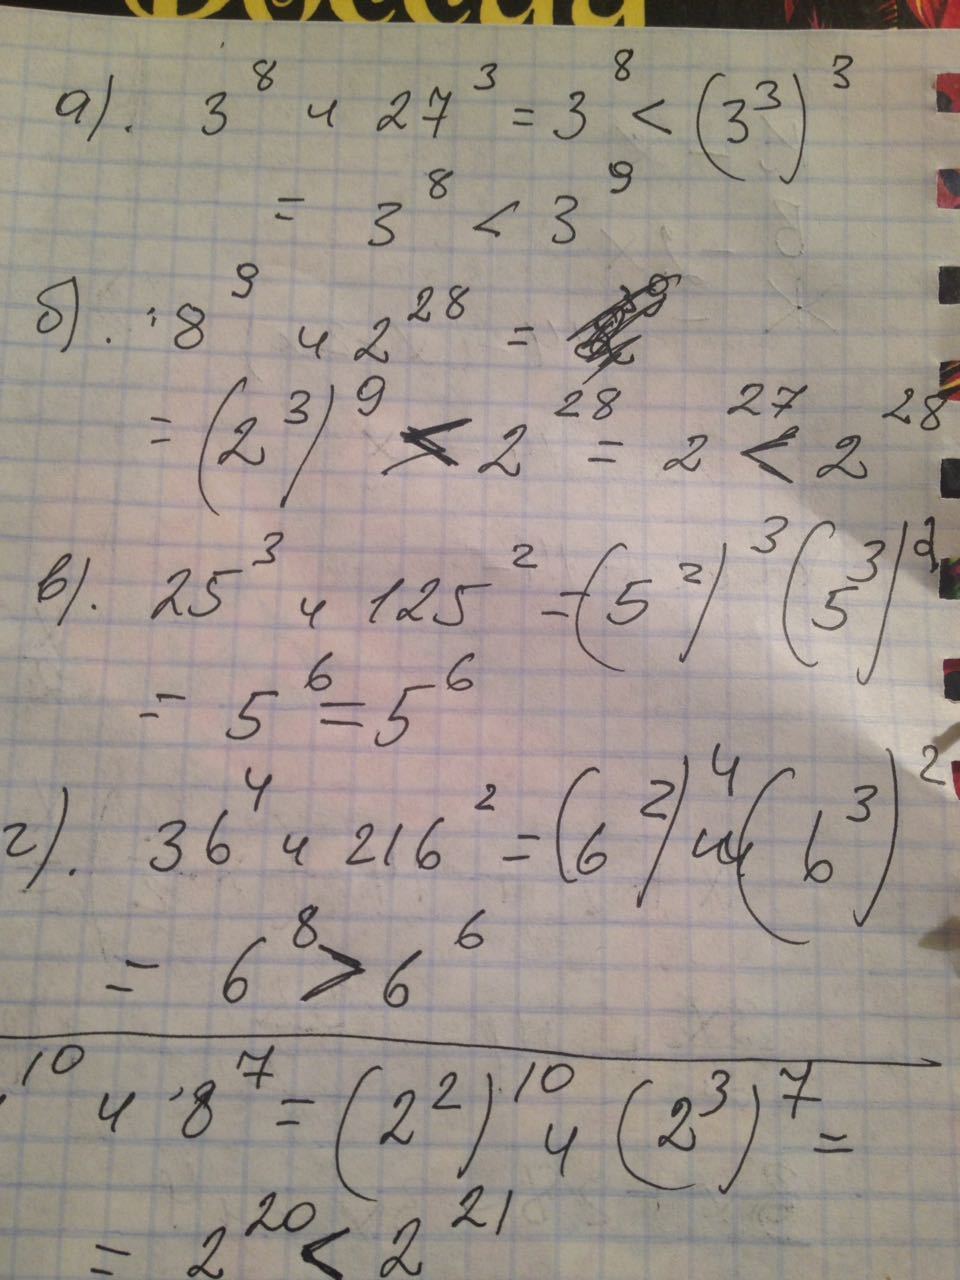 России
а). 3⁸ и 27³ = 3⁸ < (3³)³
= 3⁸ < 3⁹
б). 8⁹ и 2²⁸ =
= (2³)⁹ < 2²⁸ = 2²⁷ < 2²⁸
в). 25³ и 125² = (5²)³ (5³)²
= 5⁶ = 5⁶
г). 36⁴ и 216² = (6²)⁴ и (6³)²
= 6⁸ > 6⁶
¹⁰ и 8⁷ = (2²)¹⁰ и (2³)⁷ =
= 2²⁰ < 2²¹